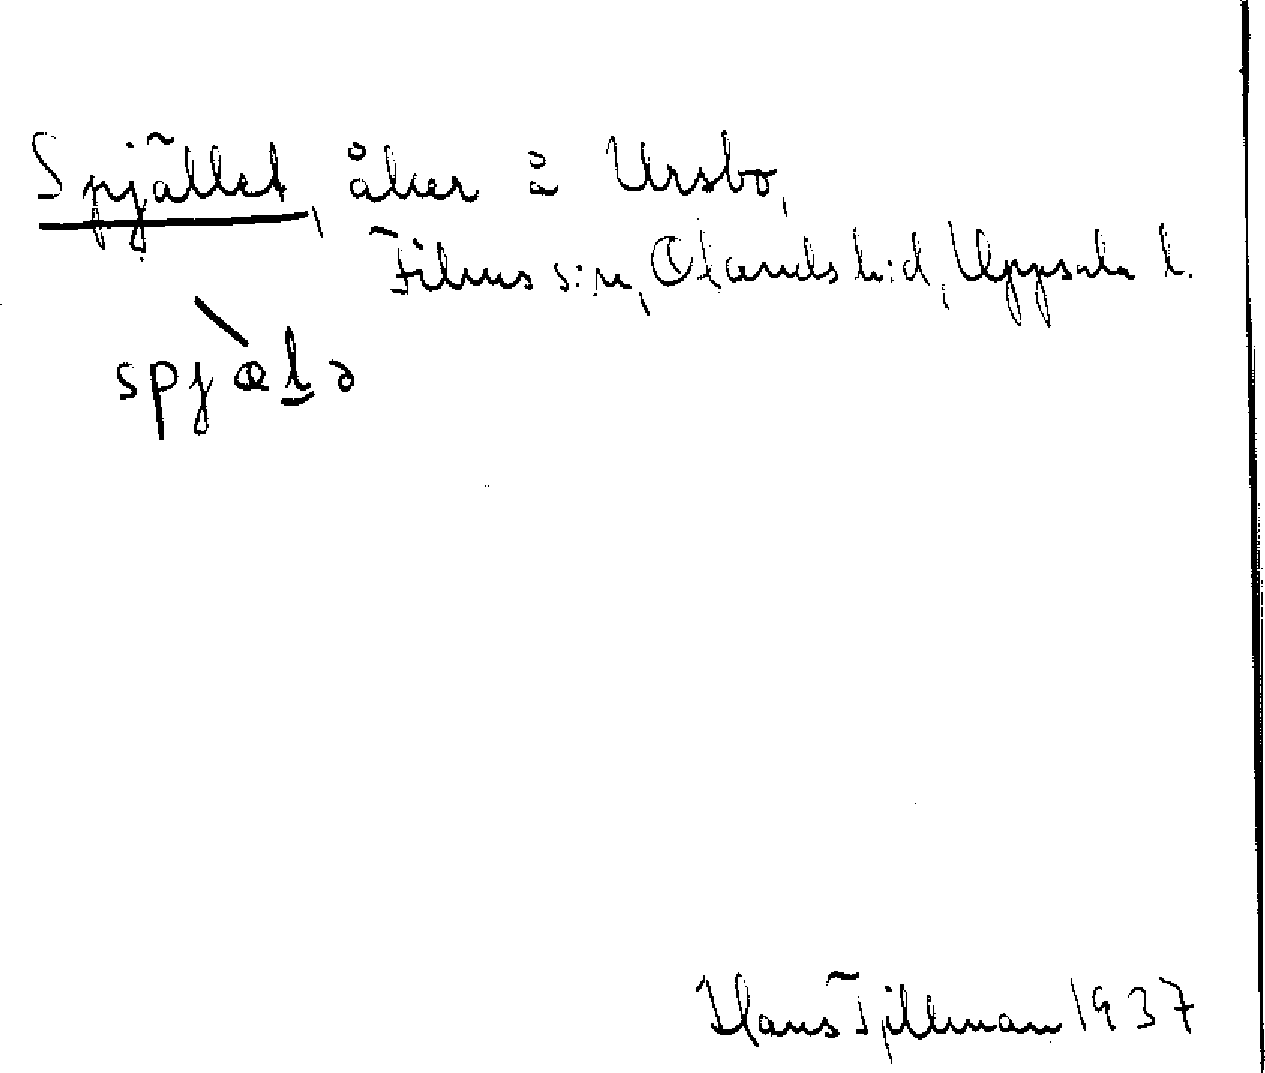 Spjället, åker å Ursbo,
Films s:n, Olands h:d, Uppsala l.
spjœlə
Hans Tillman 1937